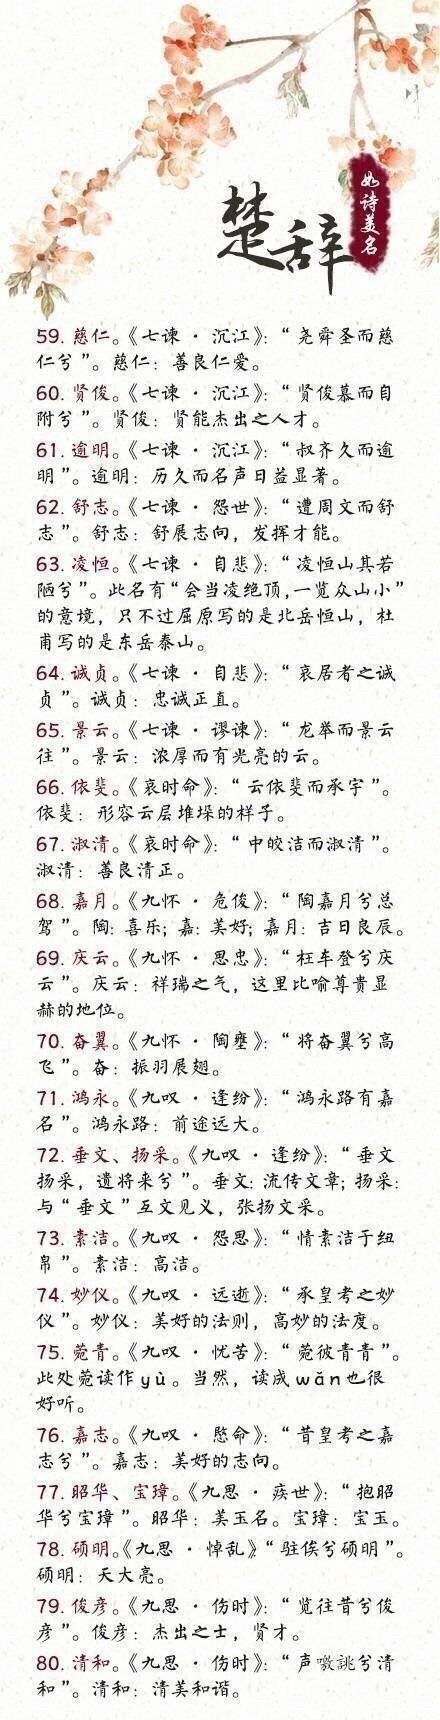 楚辞
如诗美名
59. 慈仁。《七谏·沉江》：“尧舜圣而慈
仁兮”。慈仁：善良仁爱。
60. 贤俊。《七谏·沉江》：“贤俊慕而自
附兮”。贤俊：贤能杰出之人才。
61. 逾明。《七谏·沉江》：“叔齐久而逾
明”。逾明：历久而名声日益显著。
62. 舒志。《七谏·怨世》：“遭周文而舒
志”。舒志：舒展志向，发挥才能。
63. 凌恒。《七谏·自悲》：“凌恒山其若
陋兮”。此名有“会当凌绝顶，一览众山小”
的意境，只不过屈原写的是北岳恒山，杜
甫写的是东岳泰山。
64. 诚贞。《七谏·自悲》：“哀居者之诚
贞”。诚贞：忠诚正直。
65. 景云。《七谏·谬谏》：“龙举而景云
往”。景云：浓厚而有光亮的云。
66. 依斐。《哀时命》：“云依斐而承宇”。
依斐：形容云层堆垛的样子。
67. 淑清。《哀时命》：“中皎洁而淑清”。
淑清：善良清正。
68. 嘉月。《九怀·危俊》：“陶嘉月兮总
驾”。陶：喜乐；嘉：美好；嘉月：吉日良辰。
69. 庆云。《九怀·思忠》：“枉车登兮庆
云”。庆云：祥瑞之气，这里比喻尊贵显
赫的地位。
70. 奋翼。《九怀·陶壅》：“将奋翼兮高
飞”。奋：振羽展翅。
71. 鸿永。《九叹·逢纷》：“鸿永路有嘉
名”。鸿永路：前途远大。
72. 垂文、扬采。《九叹·逢纷》：“垂文
扬采，遗将来兮”。垂文：流传文章；扬采：
与“垂文”互文见义，张扬文采。
73. 素洁。《九叹·怨思》：“情素洁于纽
帛”。素洁：高洁。
74. 妙仪。《九叹·远逝》：“承皇考之妙
仪”。妙仪：美好的法则，高妙的法度。
75. 菀青。《九叹·忧苦》：“菀彼青青”。
此处菀读作yù。当然，读成wǎn也很
好听。
76. 嘉志。《九叹·愍命》：“昔皇考之嘉
志兮”。嘉志：美好的志向。
77. 昭华、宝璋。《九思·疾世》：“抱昭
华兮宝璋”。昭华：美玉名。宝璋：宝玉。
78. 硕明。《九思·悼乱》：“驻俟兮硕明”。
硕明：天大亮。
79. 俊彦。《九思·伤时》：“览往昔兮俊
彦”。俊彦：杰出之士，贤才。
80. 清和。《九思·伤时》：“声噭誂兮清
和”。清和：清美和谐。